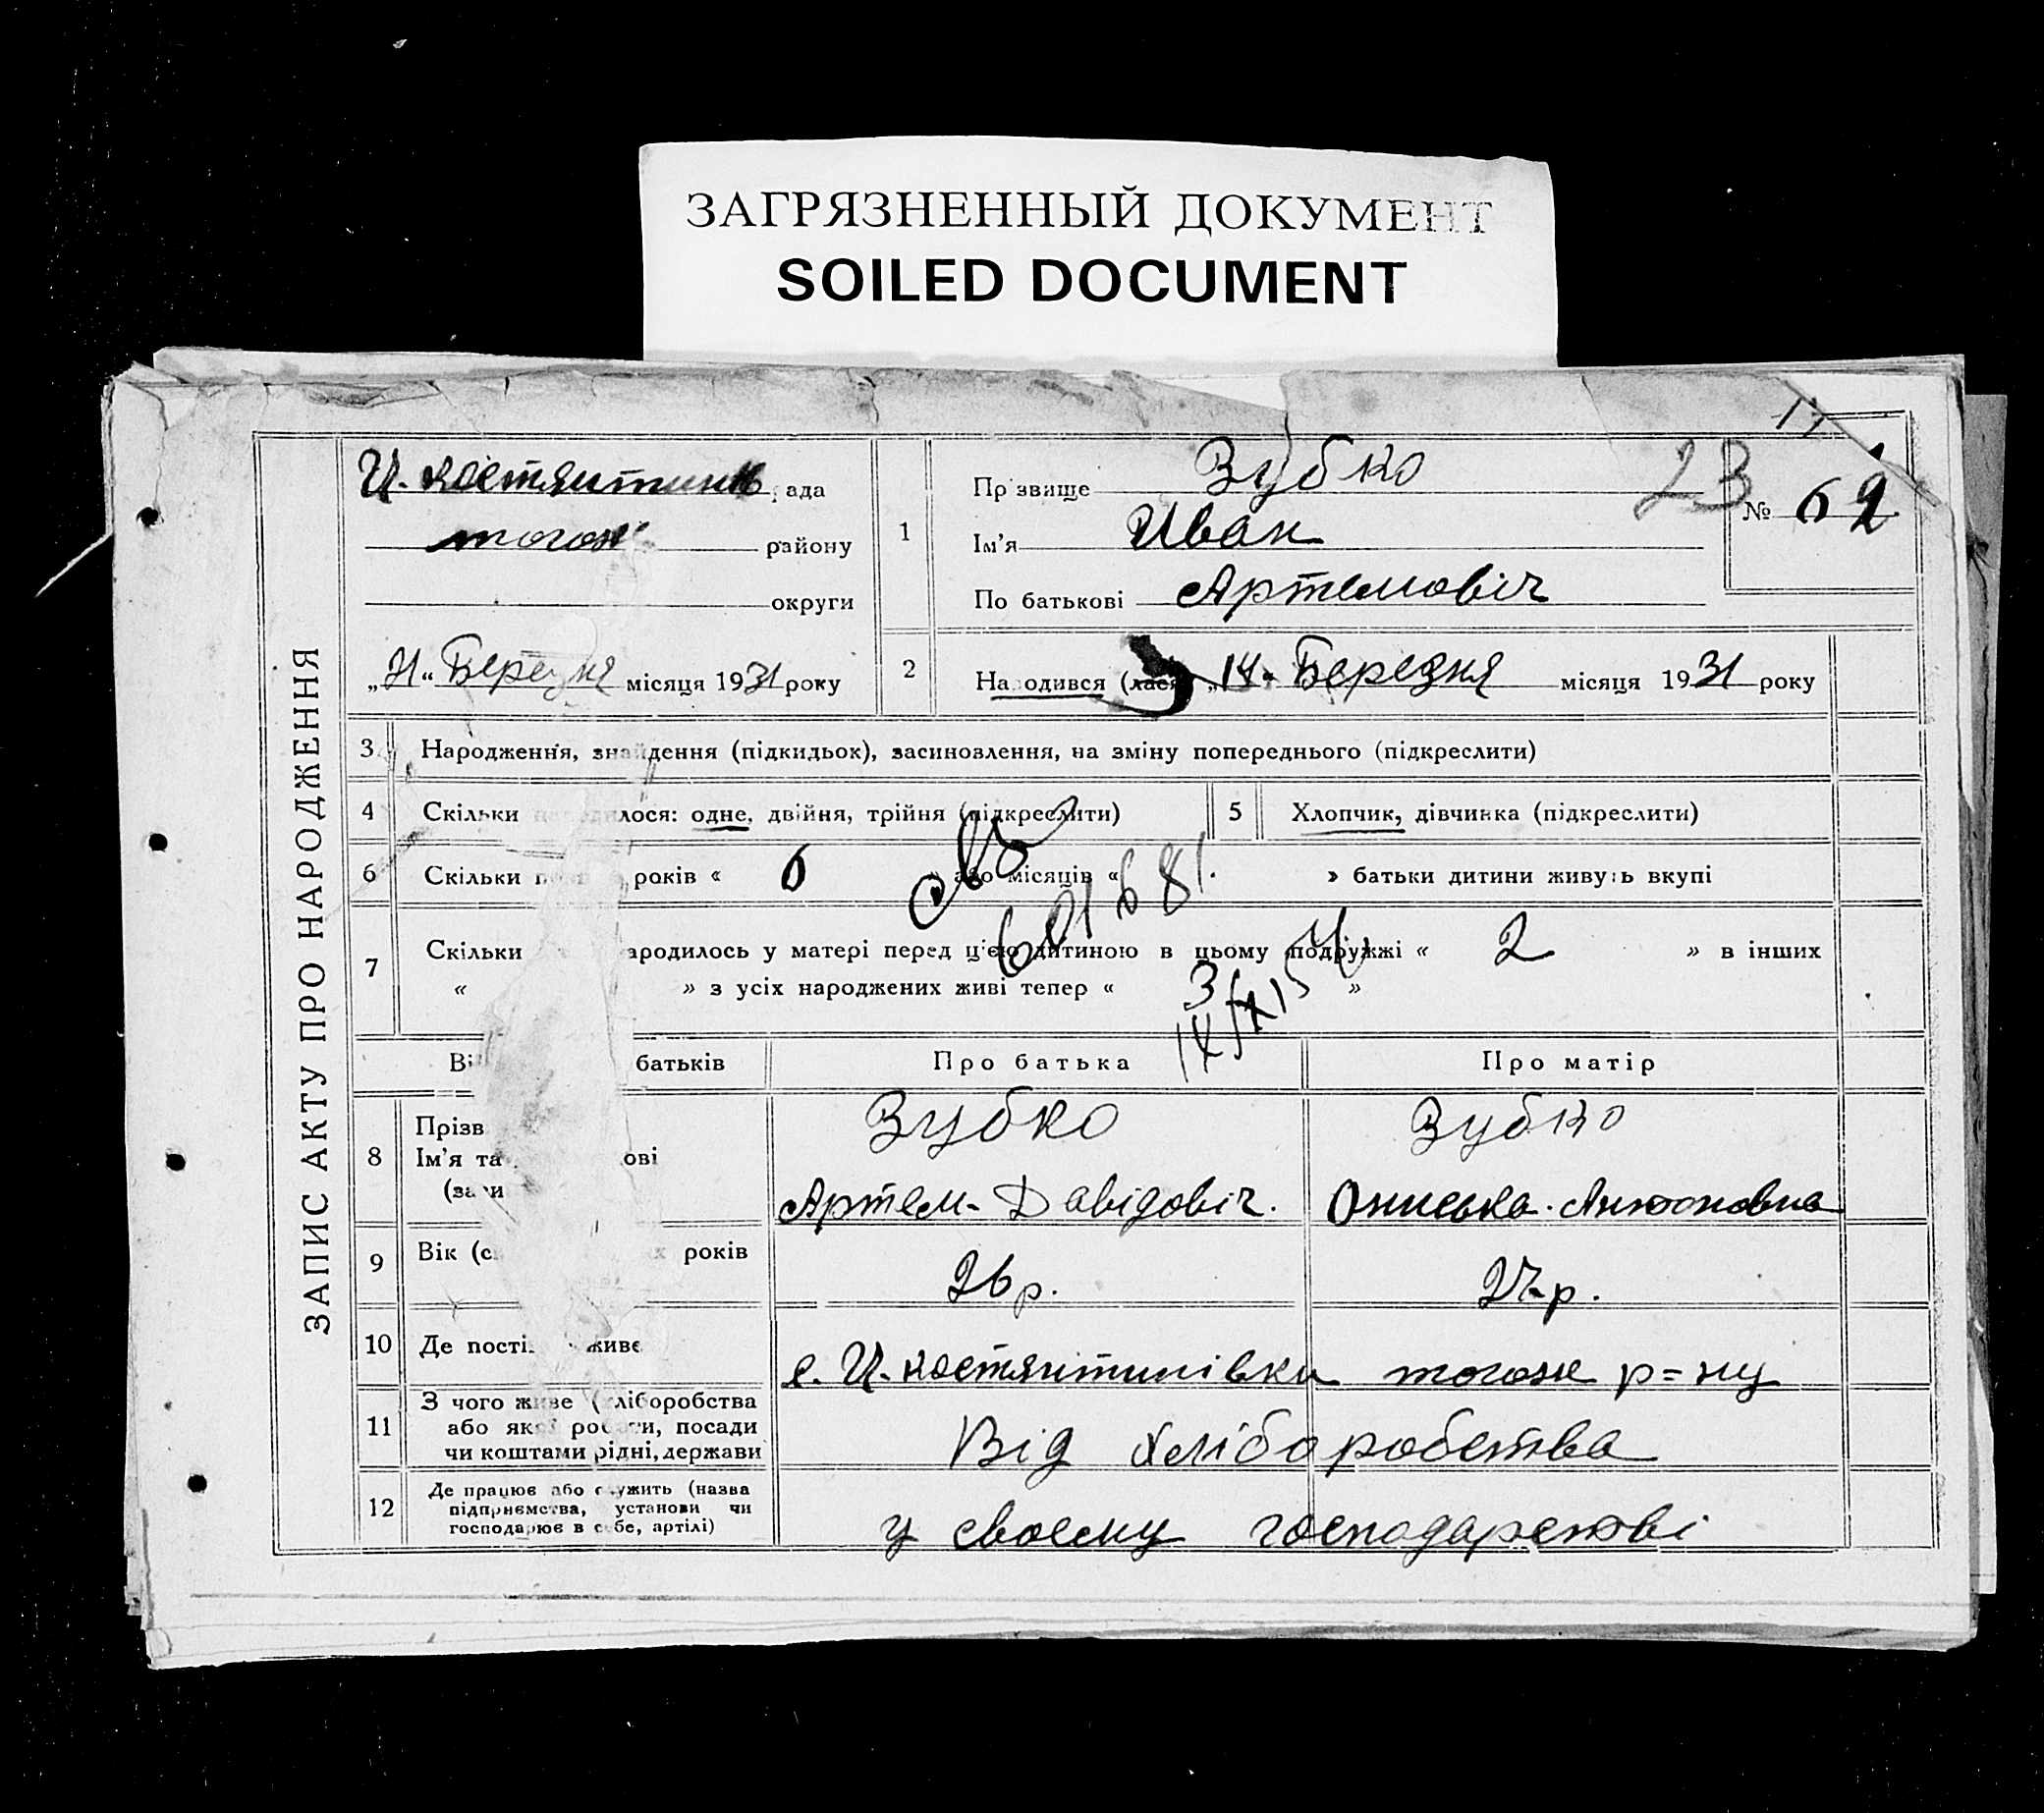 ЗАГРЯЗНЕННЫЙ ДОКУМЕНТ
SOILED DOCUMENT
ЗАПИС АКТУ ПРО НАРОДЖЕННЯ
рада
району
округи
Березня місяця 1931 року
1
Прізвище Зубко
Ім'я Иван
По батькові Артемовіч
23
№ 62
2
Народився (лася) „14" Березня місяця 1931 року
3 Народження, знайдення (підкидьох), засиновлення, на зміну попереднього (підкреслити)
4 Скільки народилося: одне, двійня, трійня (підкреслити)
5 Хлопчик, дівчинка (підкреслити)
6 Скільки років « 6 » або місяців « » батьки дитини живуть вкупі
7 Скільки народилось у матері перед цією дитиною в цьому подружжі « 2 » в інших
« » з усіх народжених живі тепер « 3 »
батьків
Про батька
Про матір
8
Ім'я та
Зубко
Артем Давідовіч.
Зубко
Ониська Антоновна
9 Вік років
26 р.
27 р.
10 Де постійно живе
с. И. костянтинівки тогож р=ну
11 З чого живе (хліборобства
або якої роботи, посади
чи коштами рідні, держави
Від хліборобства
12 Де працює або служить (назва
підприємства, установи чи
господарює в себе, артілі)
у своему господарстві